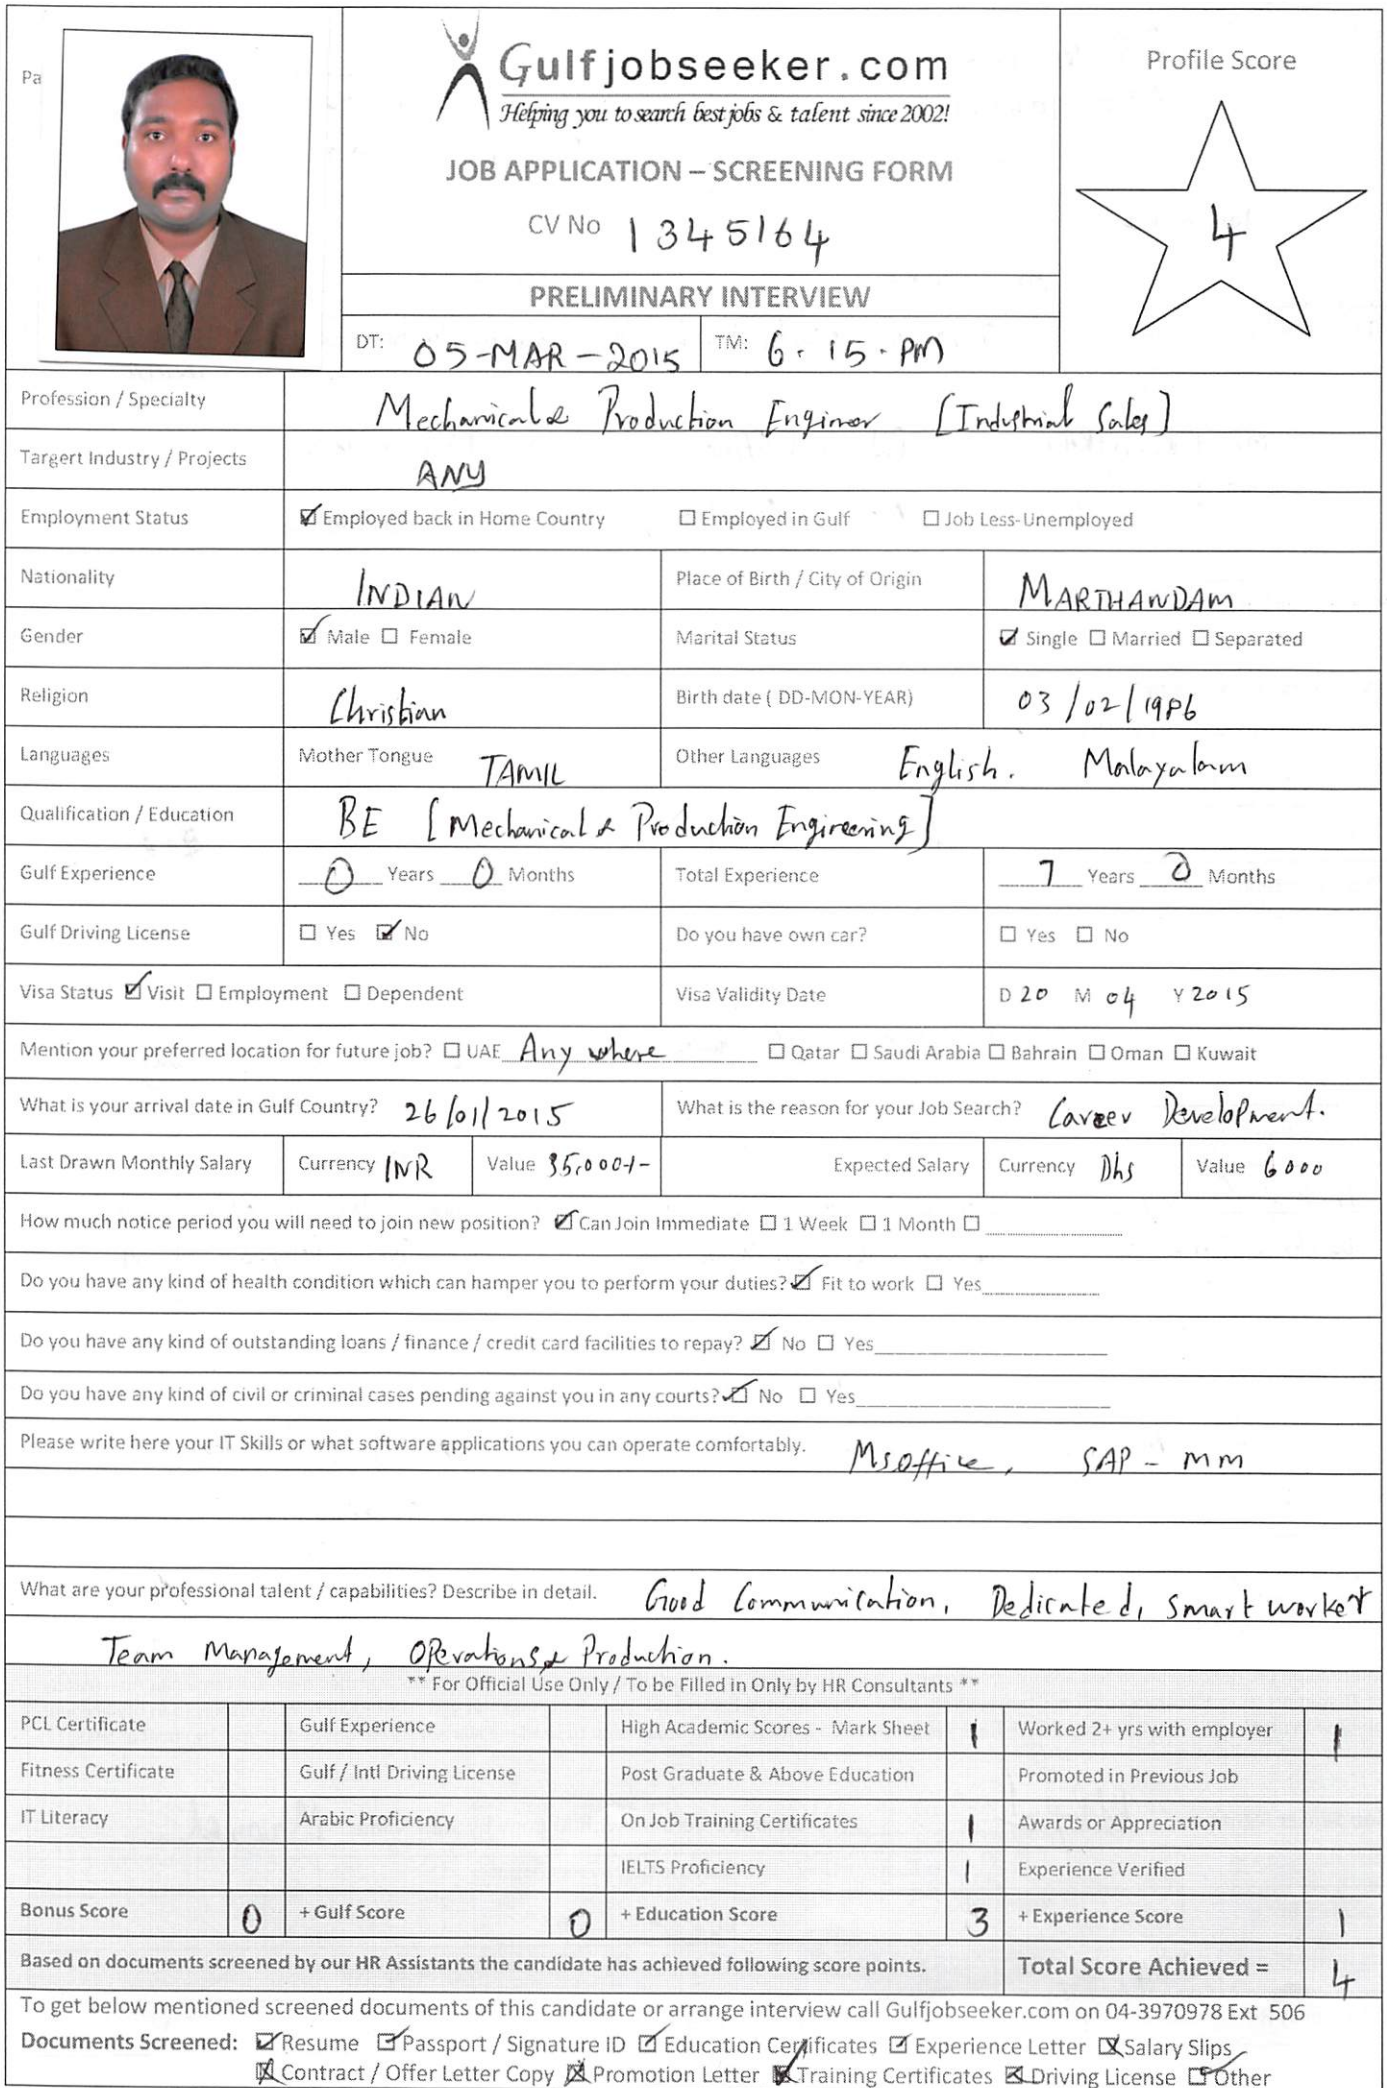 Pa
Gulfjobseeker.com
Helping you to search best jobs & talent since 2002!
JOB APPLICATION – SCREENING FORM
CV No 1345164
Profile Score
4
PRELIMINARY INTERVIEW
DT: 05-MAR-2015 TM: 6.15.PM
Profession / Specialty Mechanical & Production Enginer [Industrial Sales]
Targert Industry / Projects ANY
Employment Status ☑ Employed back in Home Country ☐ Employed in Gulf ☐ Job Less-Unemployed
Nationality INDIAN Place of Birth / City of Origin MARTHANDAM
Gender ☑ Male ☐ Female Marital Status ☑ Single ☐ Married ☐ Separated
Religion Christian Birth date ( DD-MON-YEAR) 03/02/1986
Languages Mother Tongue TAMIL Other Languages English. Malayalam
Qualification / Education BE [Mechanical & Production Engineering]
Gulf Experience 0 Years 0 Months Total Experience 7 Years 0 Months
Gulf Driving License ☐ Yes ☑ No Do you have own car? ☐ Yes ☐ No
Visa Status ☑ Visit ☐ Employment ☐ Dependent Visa Validity Date D 20 M 04 Y 2015
Mention your preferred location for future job? ☐ UAE Any where ☐ Qatar ☐ Saudi Arabia ☐ Bahrain ☐ Oman ☐ Kuwait
What is your arrival date in Gulf Country? 26/01/2015 What is the reason for your Job Search? Career Development.
Last Drawn Monthly Salary Currency INR Value 35,000/- Expected Salary Currency Dhs Value 6000
How much notice period you will need to join new position? ☑ Can Join Immediate ☐ 1 Week ☐ 1 Month ☐
Do you have any kind of health condition which can hamper you to perform your duties? ☑ Fit to work ☐ Yes
Do you have any kind of outstanding loans / finance / credit card facilities to repay? ☑ No ☐ Yes
Do you have any kind of civil or criminal cases pending against you in any courts? ☑ No ☐ Yes
Please write here your IT Skills or what software applications you can operate comfortably. Msoffice, SAP - MM
What are your professional talent / capabilities? Describe in detail. Good Communication, Dedicated, Smart worker
Team Management, Operations & Production.
** For Official Use Only / To be Filled in Only by HR Consultants **
PCL Certificate Gulf Experience High Academic Scores - Mark Sheet 1 Worked 2+ yrs with employer 1
Fitness Certificate Gulf / Intl Driving License Post Graduate & Above Education Promoted in Previous Job
IT Literacy Arabic Proficiency On Job Training Certificates 1 Awards or Appreciation
IELTS Proficiency 1 Experience Verified
Bonus Score 0 + Gulf Score 0 + Education Score 3 + Experience Score 1
Based on documents screened by our HR Assistants the candidate has achieved following score points. Total Score Achieved = 4
To get below mentioned screened documents of this candidate or arrange interview call Gulfjobseeker.com on 04-3970978 Ext 506
Documents Screened: ☑ Resume ☑ Passport / Signature ID ☑ Education Certificates ☑ Experience Letter ☒ Salary Slips
☒ Contract / Offer Letter Copy ☒ Promotion Letter ☑ Training Certificates ☒ Driving License ☑ Other